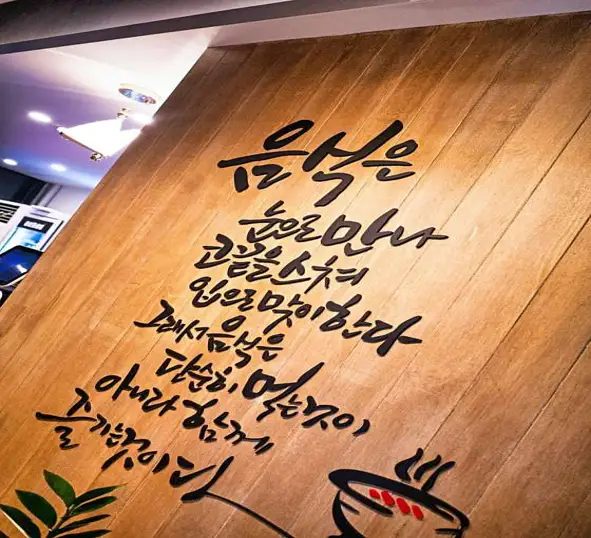 음식은
눈으로 만나
코끝을 스쳐
입으로 맞이한다
그래서 음식은
단순히 먹는것이
아니라 함께
즐기는것이다